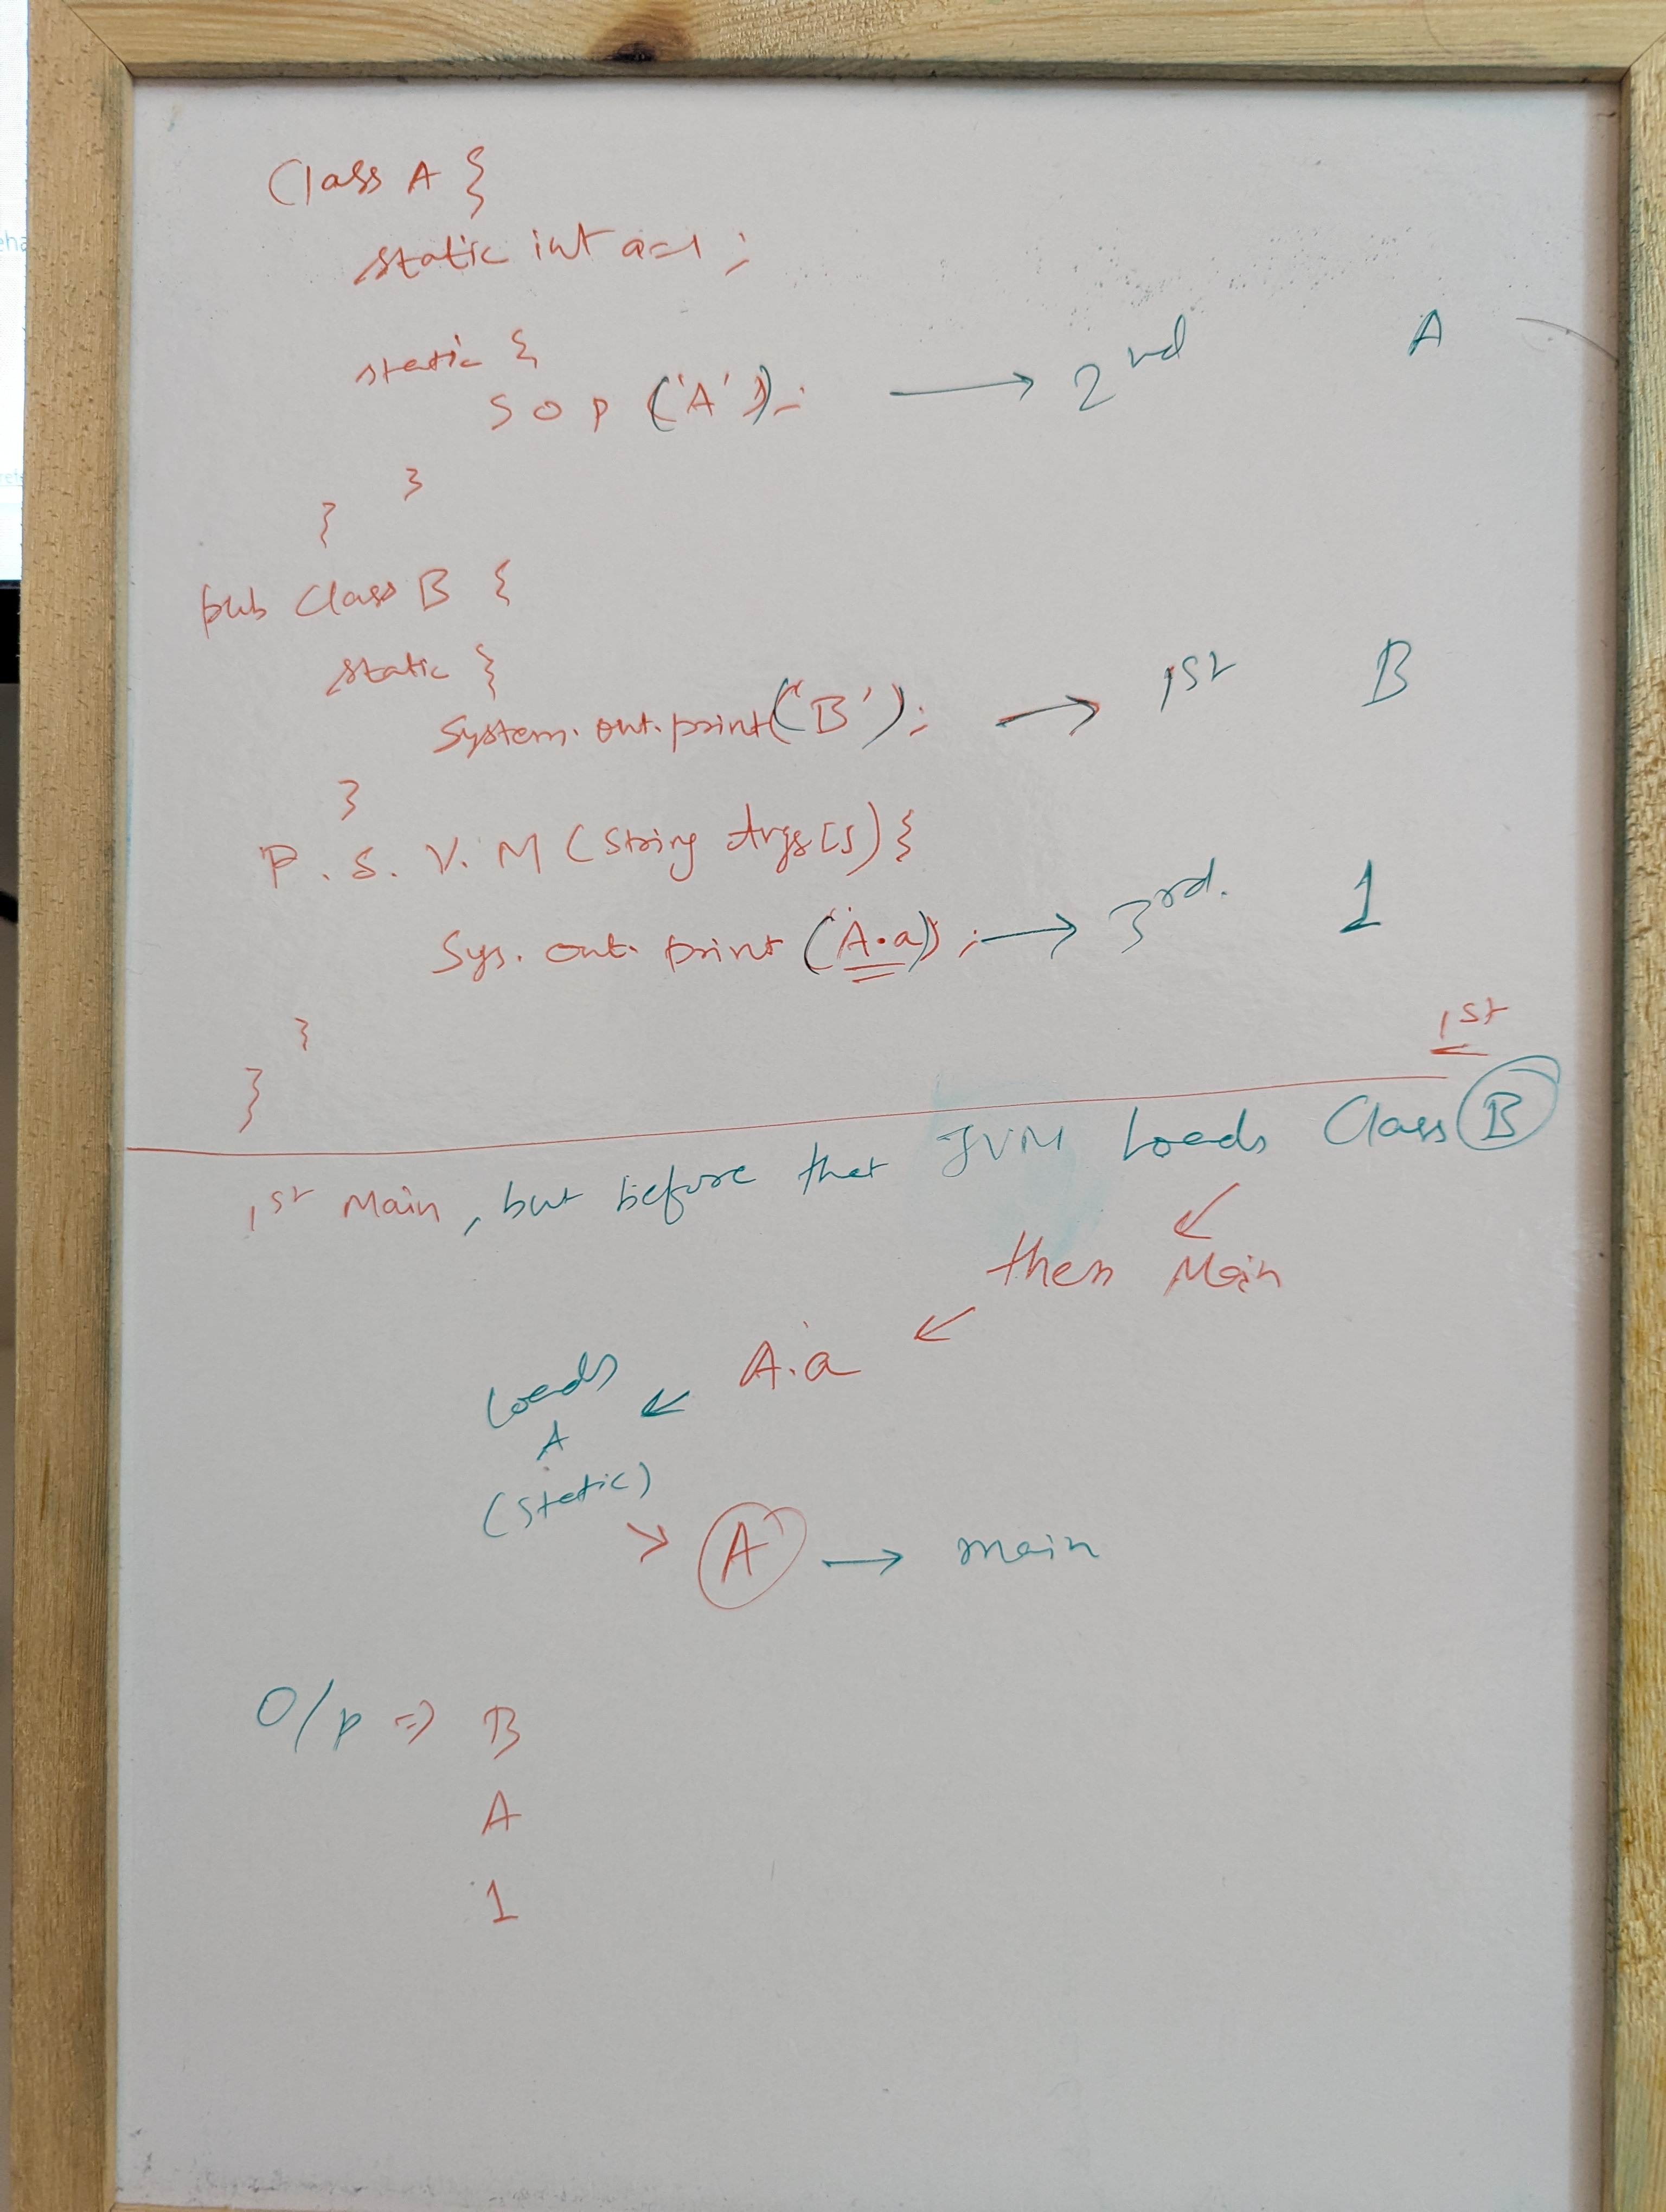 Class A {
static int a=1;
static {
S O P ('A'); → 2nd A
}
}
pub Class B {
static {
System.out.print('B'); → 1st B
}
P.S.V.M (String Args[]) {
Sys.out.print (A.a); → 3rd. 1
}
}
1st
1st Main, but before that JVM Loads Class B
then Main
A.a
Loads
A
(static)
A → main
O/p => B
A
1